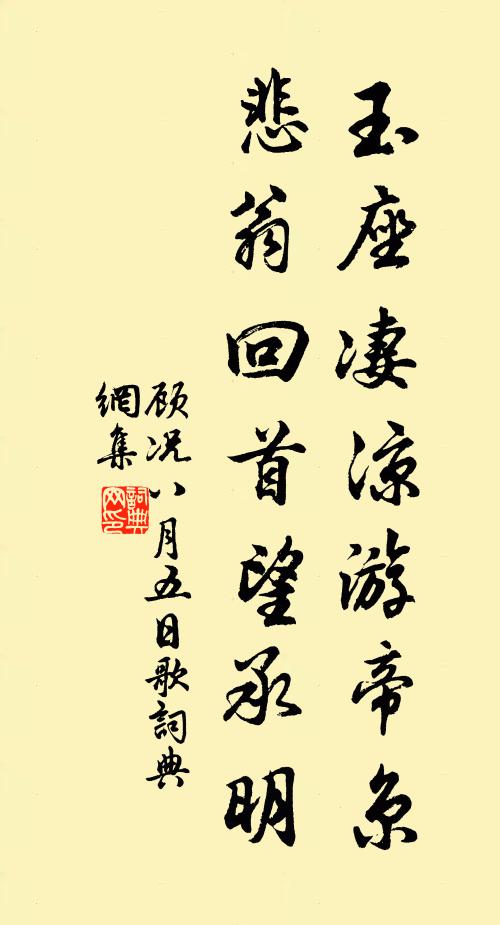 玉座凄涼游帝京
悲翁回首望承明
顾况八月五日歌詞典
網集
詞典
网印